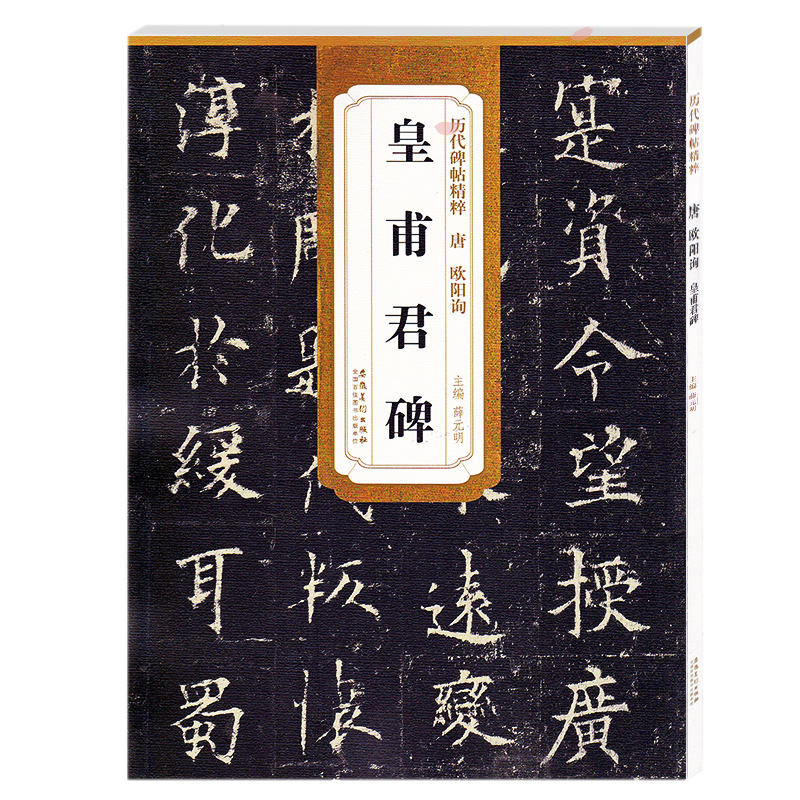 历代碑帖精粹 唐 欧阳询
皇甫君碑
主编 薛元明
安徽美术出版社
全国百佳图书出版单位
寔資令望授廣
遠變
薄化於緩耳蜀
历代碑帖精粹 唐 欧阳询 皇甫君碑 主编 薛元明